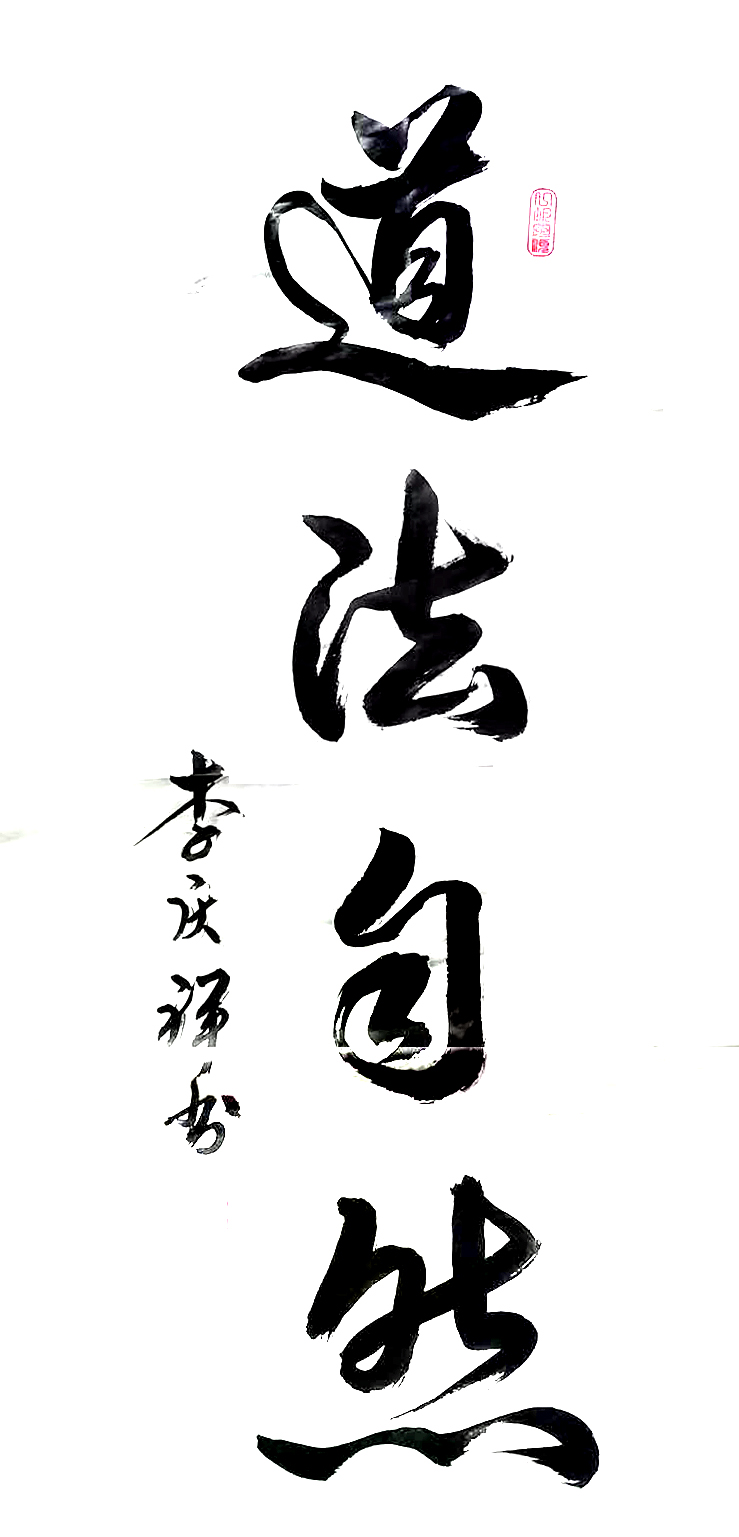 道法自然
李庆祥书